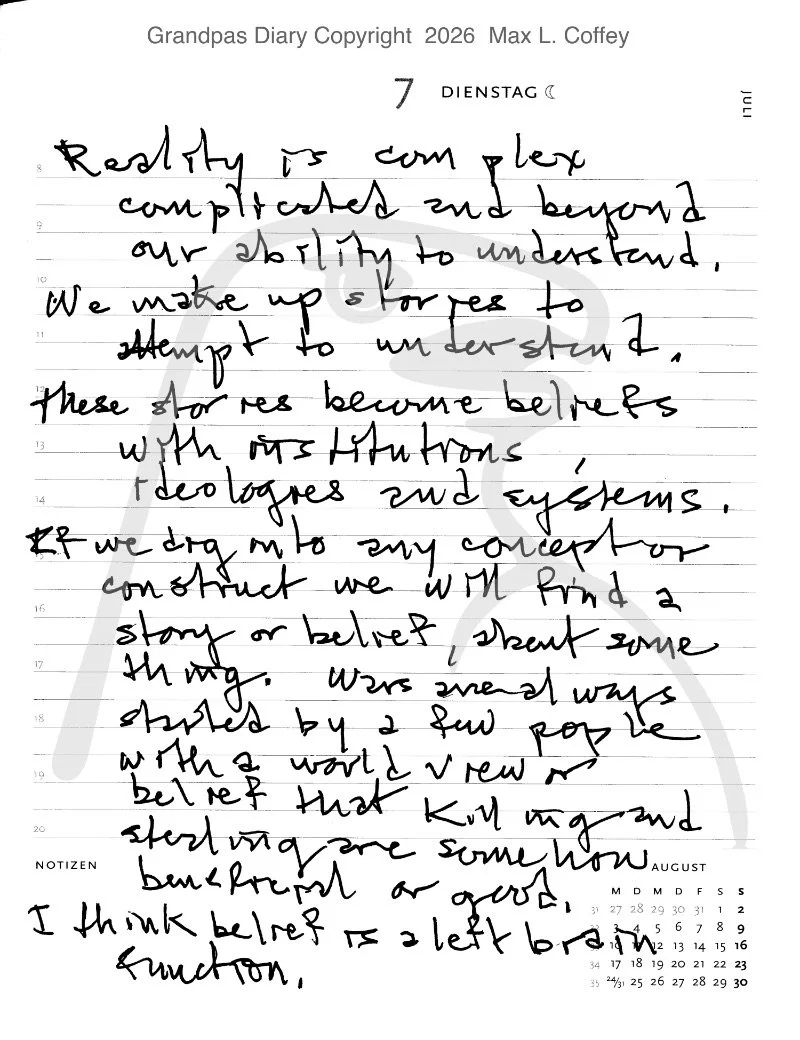 Grandpas Diary Copyright 2026 Max L. Coffey
7 DIENSTAG
JULI
Reality is complex
complicated and beyond
our ability to understand.
We make up stories to
attempt to understand.
These stories become beliefs
with institutions,
ideologies and systems.
If we dig into any concept or
construct we will find a
story or belief, about some
thing. Wars are always
started by a few people
with a world view or
belief that killing and
stealing are somehow
beneficial or good.
I think belief is a left brain
function.
8
9
10
11
12
13
14
15
16
17
18
19
20
NOTIZEN
AUGUST
M D M D F S S
31 27 28 29 30 31 1 2
3 4 5 6 7 8 9
10 11 12 13 14 15 16
34 17 18 19 20 21 22 23
35 24/31 25 26 27 28 29 30